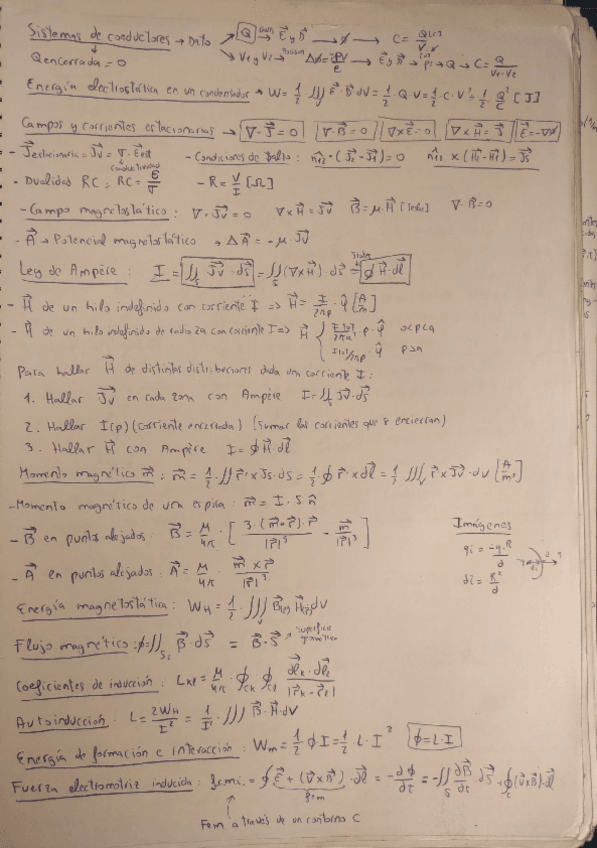 Sistemas de conductores → Dato → Q → E⃗ y D⃗ → ϕ → C = Q/V
Qencerrada = 0 V₁ y V₂ → Δϕ = -ρv/ε → E⃗ y D⃗ → ρs → Q → C = Q/(V₁-V₂)
Energía electrostática en un condensador → W = 1/2 ∭ E⃗·D⃗ dV = 1/2·Q·V = 1/2·C·V² = 1/2·Q²/C [J]
Campos y corrientes estacionarias → ∇·J⃗ = 0 ∇·B⃗ = 0 ∇×E⃗ = 0 ∇×H⃗ = J⃗ E⃗ = -∇ϕ
- J⃗estacionaria = J⃗v = σ·E⃗est - Condiciones de salto: n̂₁₂·(J⃗₂-J⃗₁) = 0 n̂₁₂×(H⃗₂-H⃗₁) = J⃗s
conductividad
- Dualidad RC: RC = ε/σ - R = V/I [Ω]
- Campo magnetostático: ∇·J⃗v = 0 ∇×H⃗ = J⃗v B⃗ = μ·H⃗ [Tesla] ∇·B⃗ = 0
- A⃗ → Potencial magnetostático → ΔA⃗ = -μ·J⃗v
Ley de Ampère: I = ∬ₛ J⃗v·ds⃗ = ∬(∇×H⃗)·ds⃗ = ∮H⃗·dl⃗
- H⃗ de un hilo indefinido con corriente I => H⃗ = I/2πρ·φ̂ [A/m]
- H⃗ de un hilo indefinido de radio 2a con corriente I => H⃗ { Itot/2πa²·ρ·φ̂ 0<ρ<a
Itot/2πρ·φ̂ ρ>a
Para hallar H⃗ de distintas distribuciones dada una corriente I:
1. Hallar J⃗v en cada zona con Ampère I = ∬ₛ J⃗v·ds⃗
2. Hallar I(ρ) (corriente encerrada) (sumar las corrientes que se encierran)
3. Hallar H⃗ con Ampère I = ∮H⃗·dl⃗
Momento magnético m⃗: m⃗ = 1/2·∬r⃗'×Js·ds = 1/2·∮r⃗'×dl⃗ = 1/2·∭ᵥ r⃗×J⃗v·dv [A/m²]
- Momento magnético de una espira: m⃗ = I·S n̂
- B⃗ en puntos alejados: B⃗ = μ/4π·[3·(m⃗·r⃗)·r⃗/|r⃗|⁵ - m⃗/|r⃗|³] Imágenes
qi = -q·R/d
- A⃗ en puntos alejados: A⃗ = μ/4π·m⃗×r⃗/|r⃗|³ di = R²/d
Energía magnetostática: WH = 1/2·∭ᵥ B⃗(r)·H⃗(r) dV
Flujo magnético: ϕ = ∬ₛ B⃗·dS⃗ = B⃗·S⃗ → superficie geométrica
Coeficientes de inducción: Lkl = μ/4π·∮ck ∮cl dl⃗k·dl⃗l/|r⃗k-r⃗l|
Autoinducción: L = 2WH/I² = 1/I²·∭B⃗·H⃗·dV
Energía de formación e interacción: Wm = 1/2 ϕI = 1/2·L·I² ϕ = L·I
Fuerza electromotriz inducida: f.e.m.i. = ∮E⃗+(v⃗×B⃗)·dl⃗ = -dϕ/dt = -∬ₛ ∂B⃗/∂t·dS⃗ + ∮c(v⃗×B⃗)·dl⃗
Fem a través de un contorno C